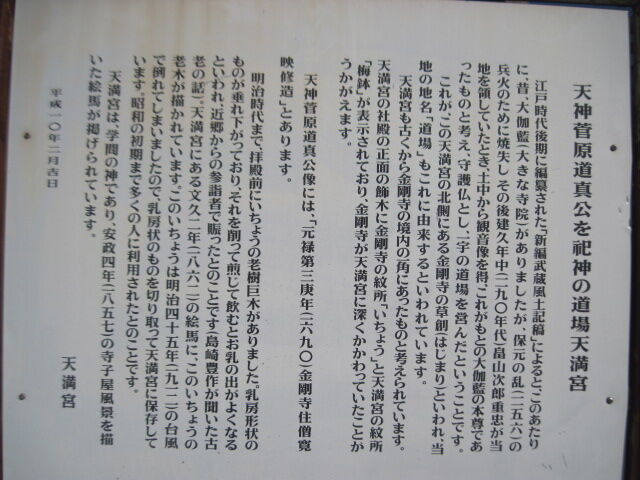 天神菅原道真公を祀神の道場天満宮
江戸時代後期に編纂された「新編武蔵風土記稿」によると、このあたり
に、昔、大伽藍(大きな寺院)がありましたが、保元の乱(一一五六)の
兵火のために焼失し、その後建久年中(一一九〇年代)畠山次郎重忠が当
地を領していたとき、土中から観音像を得、これがもとの大伽藍の本尊であ
ったものと考え、守護仏とし、一宇の道場を営んだということです。
これが、この天満宮の北側にある金剛寺の草創(はじまり)といわれ、当
地の地名「道場」もこれに由来するといわれています。
天満宮も古くから金剛寺の境内の一角にあったものと考えられています。
天満宮の社殿の正面の飾木に金剛寺の紋所「いちょう」と天満宮の紋所
「梅鉢」が表示されており、金剛寺が天満宮に深くかかわっていたことが
うかがえます。
天神菅原道真公像には、「元禄第三庚年(一六九〇)金剛寺住僧寛
映修造」とあります。
明治時代まで、拝殿前にいちょうの老樹巨木がありました。乳房形状の
ものが垂れ下がっており、それを削って煎じて飲むとお乳の出がよくなる
といわれ、近郷からの参詣者で賑ったとのことです(島崎豊作が聞いた古
老の話)。天満宮にある文久二年(一八六二)の絵馬に、このいちょうの
老木が描かれています。このいちょうは明治四十五年(一九一二)の台風
で倒れてしまいましたので、乳房状のものを切り取って天満宮に保存して
います。昭和の初期まで多くの人に利用されたとのことです。
天満宮は、学問の神であり、安政四年(一八五七)の寺子屋風景を描
いた絵馬が掲げられています。
平成一〇年二月吉日
天満宮